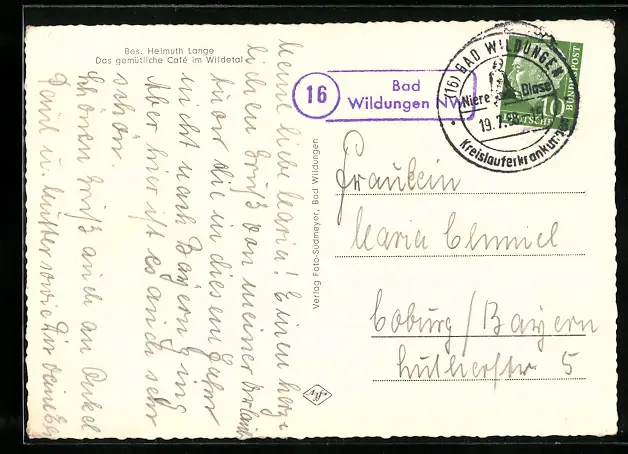 Bes. Helmuth Lange
Das gemütliche Café im Wildetal
Meine liebe Maria! Einen herz-
lichen Gruß von meiner
die in diesem Jahr
nicht nach Bayern ging
Aber hier ist es auch sehr
schön.
Schönen Gruß auch an Onkel
u. Mutter sowie Dir
Verlag Foto-Sudmeyer, Bad Wildungen
16
Bad
Wildungen NW
(16) BAD WILDUNGEN
Niere Blase
19.7.
Kreislauferkrankung
10
DEUTSCHE
BUNDESPOST
Fräulein
Maria Chmiel
Coburg / Bayern
Lutherstr 5